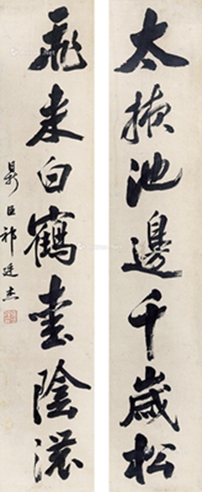 太掖池邊千歲松
飛来白鶴晝陰濃
臣祁廷杰